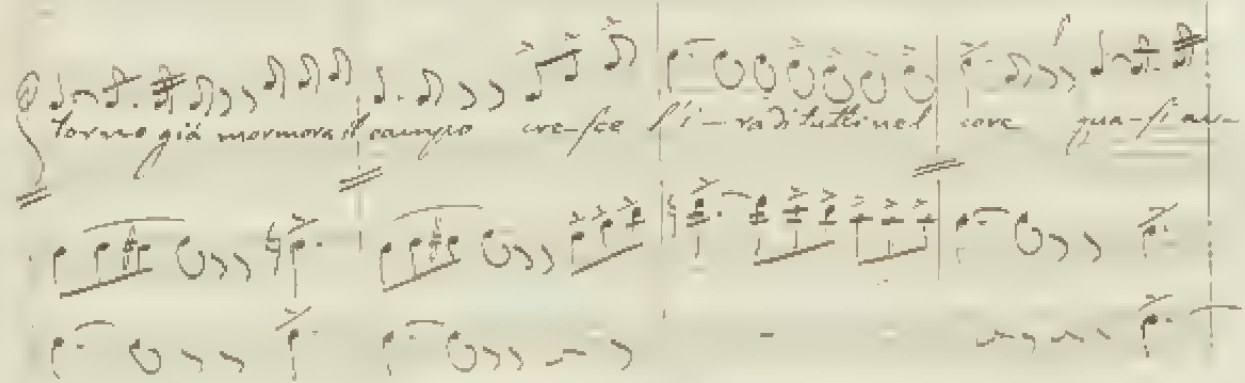 torno già mormora il campo cre-sce l'i-ra di tutti nel core qua-si